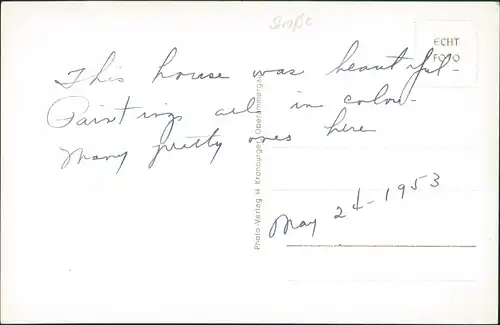 Straße
ECHT
FOTO
This house was beautiful-
Paintings all in colour-
Many pretty ones here
Photo-Verlag H. Kronburger, Oberammergau
May 24-1953